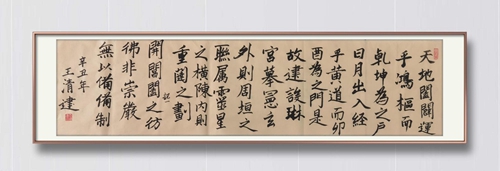 天地闔闢運
乎鴻樞而
乾坤為之戶
日月出入經
乎黄道而卯
酉為之門是
故建設琳
宮摹憲玄
外則周垣之
聯屬靈星
之横陳内則
重閣之劃
開閶闔之彷
彿非崇嚴
無以備制
辛丑年
王清建